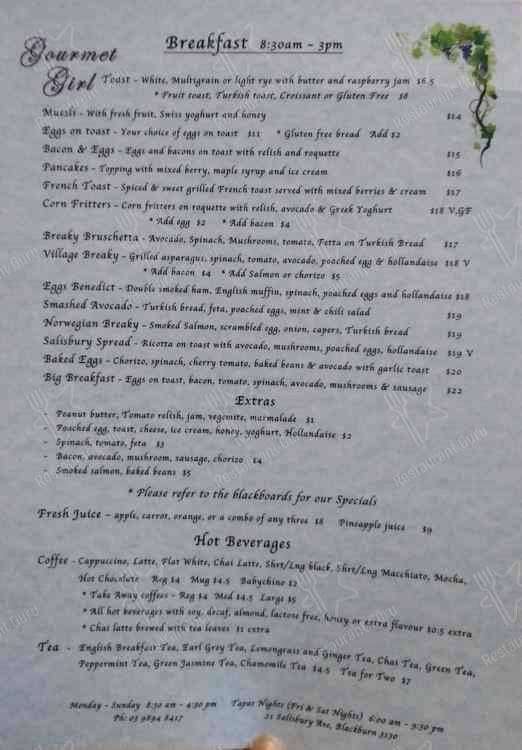 Gourmet Girl
Breakfast 8:30am - 3pm
Toast - White, Multigrain or light rye with butter and raspberry jam $6.5
* Fruit toast, Turkish toast, Croissant or Gluten Free $8
Muesli - With fresh fruit, Swiss yoghurt and honey $14
Eggs on toast - Your choice of eggs on toast $11 * Gluten free bread Add $2
Bacon & Eggs - Eggs and bacons on toast with relish and roquette $15
Pancakes - Topping with mixed berry, maple syrup and ice cream $16
French Toast - Spiced & sweet grilled French toast served with mixed berries & cream $17
Corn Fritters - Corn fritters on roquette with relish, avocado & Greek Yoghurt $18 V,GF
* Add egg $2 * Add bacon $4
Breaky Bruschetta - Avocado, Spinach, Mushrooms, tomato, Fetta on Turkish Bread $17
Village Breaky - Grilled asparagus, spinach, tomato, avocado, poached egg & hollandaise $18 V
* Add bacon $4 * Add Salmon or chorizo $5
Eggs Benedict - Double smoked ham, English muffin, spinach, poached eggs and hollandaise $18
Smashed Avocado - Turkish bread, feta, poached eggs, mint & chili salad $19
Norwegian Breaky - Smoked Salmon, scrambled egg, onion, capers, Turkish bread $19
Salisbury Spread - Ricotta on toast with avocado, mushrooms, poached eggs, hollandaise $19 V
Baked Eggs - Chorizo, spinach, cherry tomato, baked beans & avocado with garlic toast $20
Big Breakfast - Eggs on toast, bacon, tomato, spinach, avocado, mushrooms & sausage $22
Extras
- Peanut butter, Tomato relish, jam, vegemite, marmalade $1
- Poached egg, toast, cheese, ice cream, honey, yoghurt, Hollandaise $2
- Spinach, tomato, feta $3
- Bacon, avocado, mushroom, sausage, chorizo $4
- Smoked salmon, baked beans $5
* Please refer to the blackboards for our Specials
Fresh Juice - apple, carrot, orange, or a combo of any three $8 Pineapple juice $9
Hot Beverages
Coffee - Cappuccino, Latte, Flat White, Chai Latte, Shrt/Lng black, Shrt/Lng Macchiato, Mocha,
Hot Chocolate Reg $4 Mug $4.5 Babychino $2
* Take Away coffee - Reg $4 Med $4.5 Large $5
* All hot beverages with soy, decaf, almond, lactose free, honey or extra flavour $0.5 extra
* Chai latte brewed with tea leaves $1 extra
Tea - English Breakfast Tea, Earl Grey Tea, Lemongrass and Ginger Tea, Chai Tea, Green Tea,
Peppermint Tea, Green Jasmine Tea, Chamomile Tea $4.5 Tea for Two $7
Monday - Sunday 8:30 am - 4:30 pm Tapas Nights (Fri & Sat Nights) 6:00 am - 9:30 pm
Ph: 03 9894 8417 21 Salisbury Ave, Blackburn 3130